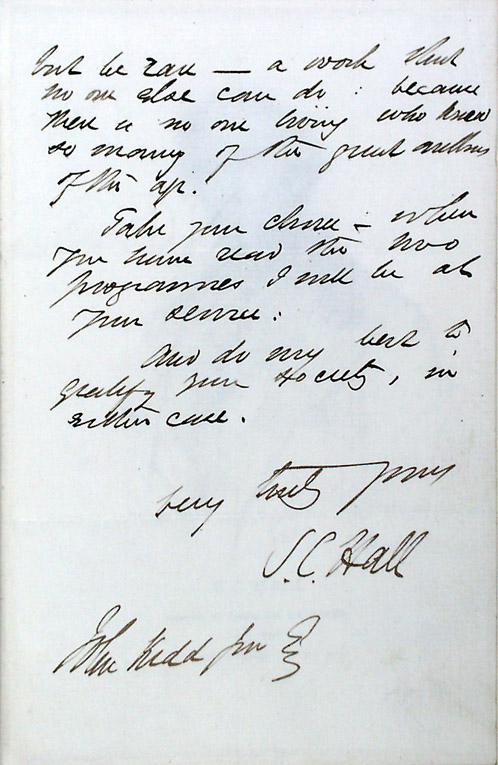 but be rare — a work that
no one else can do : because
there is no one living who knew
so many of the great authors
of the age.
Take your choice – when
you have read the two
programmes I will be at
your service :
And do my best to
gratify your Society, in
either case.
Very truly yours
S. C. Hall
John Kidd Jun Esq